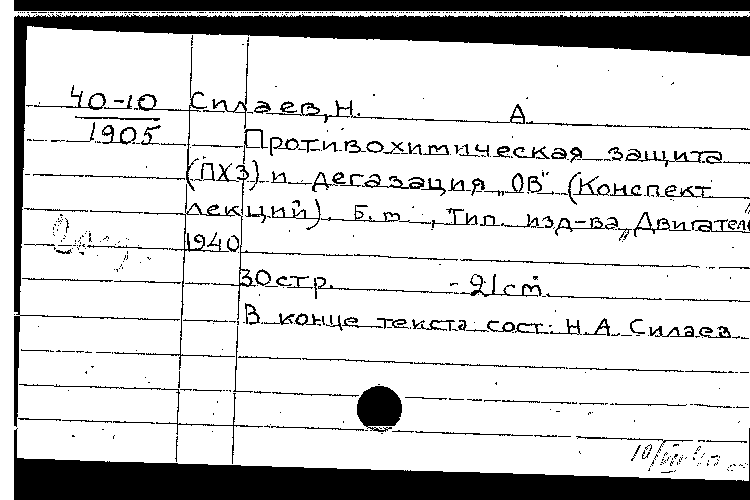 40-10
1905
Силаев, Н. А.
Противохимическая защита
(ПХЗ) и дегазация „ОВ" (Конспект
лекций). Б. m., Тип. изд-ва „Двигатель
1940.
30 стр. - 21 cm.
В конце текста сост: Н. А. Силаев